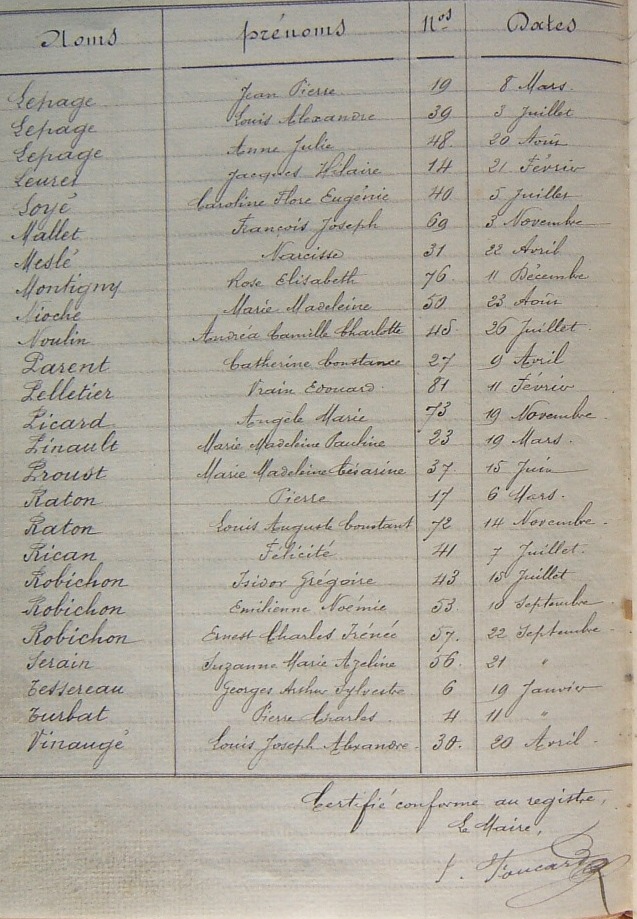 Noms prénoms Nos Dates
Lepage Jean Pierre 19 8 Mars.
Lepage Louis Alexandre 39 3 Juillet
Lepage Anne Julie 48. 20 Août
Leuret Jacques Hilaire 14 21 Février
Loyé Caroline Flore Eugénie 40 5 Juillet
Mallet François Joseph 69 3 Novembre
Meslé Narcisse 31 22 Avril
Montigny Rose Elisabeth 76. 11 Décembre
Nioche Marie Madeleine 50. 23 Août
Noulin Andréa Camille Charlotte 45. 26 Juillet.
Parent Catherine Constance 27 9 Avril
Pelletier Vrain Edouard. 81 11 Février
Picard Angele Marie 73 19 Novembre.
Pinault Marie Madeleine Pauline 23 19 Mars.
Proust Marie Madeleine Césarine 37. 15 Juin
Raton Pierre 17 6 Mars.
Raton Louis Auguste Constant 72 14 Novembre.
Rican Félicité. 41 7 Juillet.
Robichon Isidor Grégoire 43 15 Juillet
Robichon Emilienne Noémie 53. 10 Septembre
Robichon Ernest Charles Irénée 57. 22 Septembre
Serain Suzanne Marie Azeline 56. 21 "
Tessereau Georges Arthur Sylvestre. 6 19 Janvier
Turbat Pierre Charles. 4 11 "
Vinaugé Louis Joseph Alexandre. 30. 20 Avril.
Certifié conforme au registre,
Le Maire,
Foucard